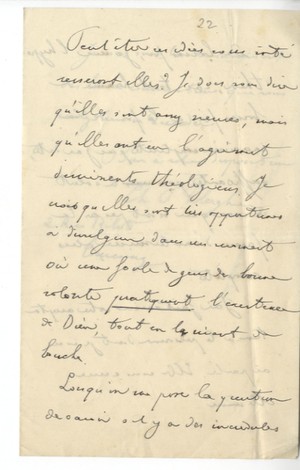 22
Peut être ces idées vous inté
resseront elles? Je dois vous dire
qu'elles sont assez neuves, mais
qu'elles ont eu l'agrément
d'éminents théologiens. Je
crois qu'elles sont très opportunes
à divulguer dans un moment
où une foule de gens de bonne
volonté pratiquent l'existence
de Dieu, tout en la niant de
bouche.
Lorsqu'on me pose la question
de savoir s'il y a des incrédules